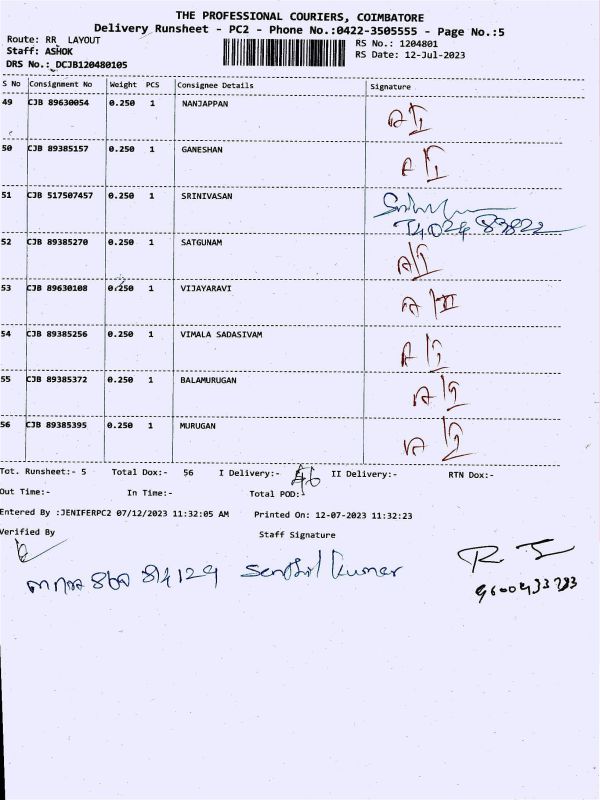 THE PROFESSIONAL COURIERS, COIMBATORE
Delivery Runsheet - PC2 - Phone No.:0422-3505555 - Page No.:5
Route: RR LAYOUT RS No.: 1204801
Staff: ASHOK RS Date: 12-Jul-2023
DRS No.: DCJB120480105
S No Consignment No Weight PCS Consignee Details Signature
49 CJB 89630054 0.250 1 NANJAPPAN
50 CJB 89385157 0.250 1 GANESHAN
51 CJB 517507457 0.250 1 SRINIVASAN
52 CJB 89385270 0.250 1 SATGUNAM
53 CJB 89630108 0.250 1 VIJAYARAVI
54 CJB 89385256 0.250 1 VIMALA SADASIVAM
55 CJB 89385372 0.250 1 BALAMURUGAN
56 CJB 89385395 0.250 1 MURUGAN
Tot. Runsheet:- 5 Total Dox:- 56 I Delivery:- 46 II Delivery:- RTN Dox:-
Out Time:- In Time:- Total POD:-
Entered By :JENIFERPC2 07/12/2023 11:32:05 AM Printed On: 12-07-2023 11:32:23
Verified By Staff Signature
Senthil Kumar